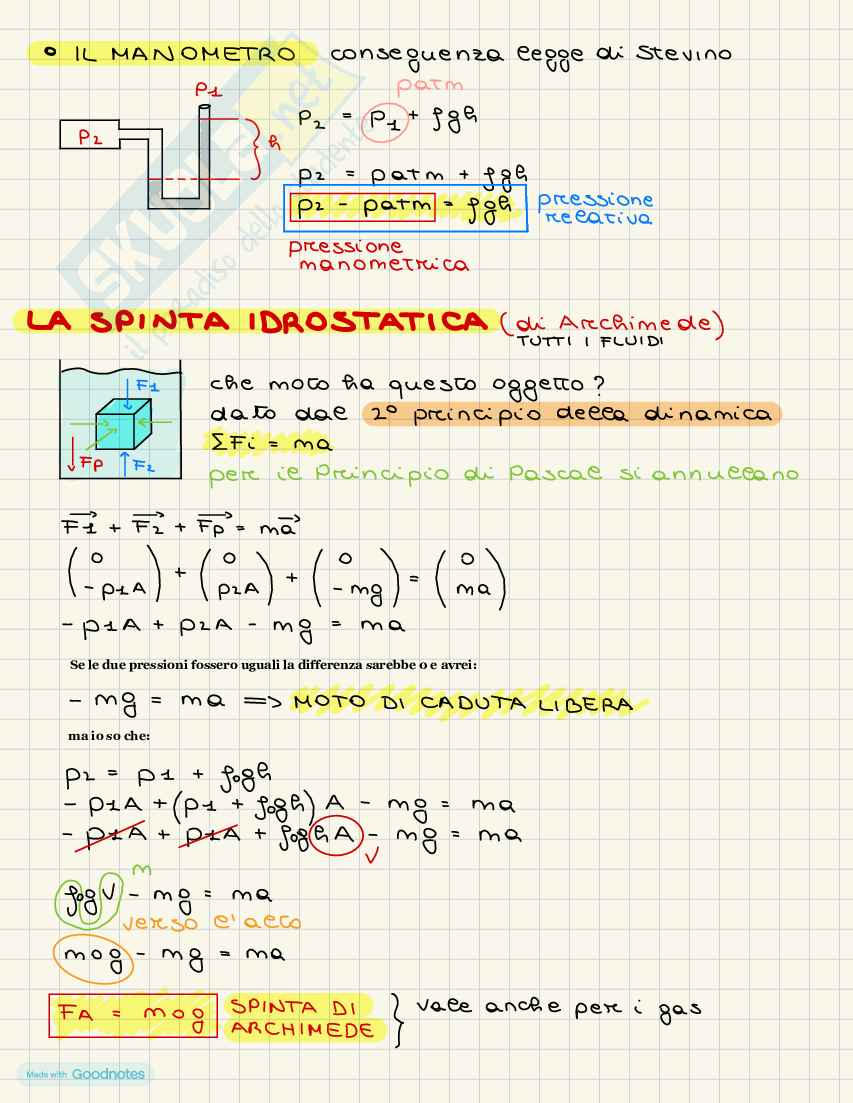 ° IL MANOMETRO conseguenza legge di Stevino
P1
patm
P2
h
P2 = P1 + ρgh
P2 = patm + ρgh
P2 - patm = ρgh
pressione relativa
pressione manometrica
LA SPINTA IDROSTATICA (di Archimede)
TUTTI I FLUIDI
F1
Fp
F2
che moto ha questo oggetto?
dato dal 2° principio della dinamica
ΣFi = ma
per il Principio di Pascal si annullano
F1 + F2 + Fp = ma
(0 -p1A) + (0 p2A) + (0 -mg) = (0 ma)
- p1A + p2A - mg = ma
Se le due pressioni fossero uguali la differenza sarebbe 0 e avrei:
- mg = ma => MOTO DI CADUTA LIBERA
ma io so che:
p2 = p1 + ρ0gh
- p1A + (p1 + ρ0gh) A - mg = ma
- p1A + p1A + ρ0ghA - mg = ma
V
m
ρ0gV - mg = ma
verso l'alto
m0g - mg = ma
FA = m0g SPINTA DI ARCHIMEDE } vale anche per i gas
Made with Goodnotes
SKUOLA.net
il paradiso dello studente